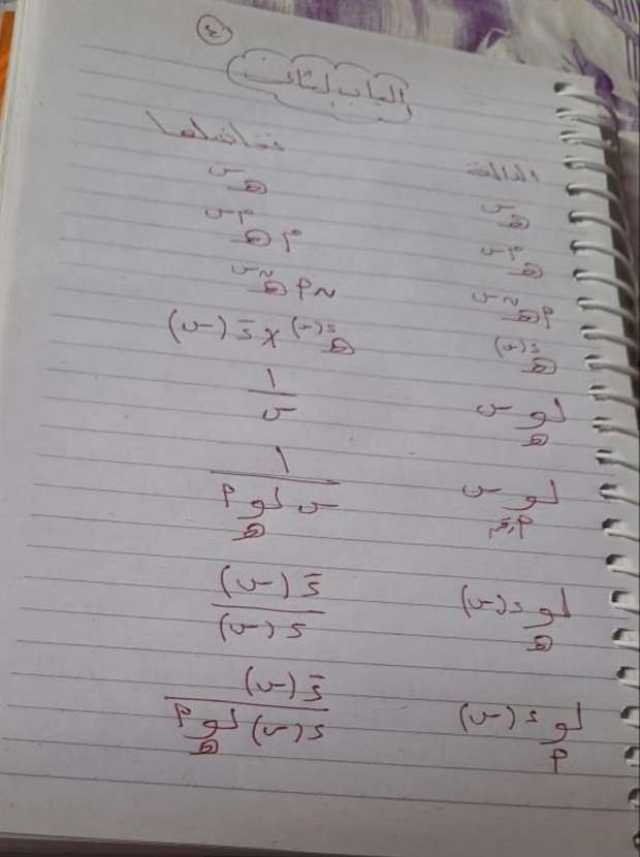 الباب الثالث
الدالة تفاضلها
هـ^س هـ^س
هـ^(م س) م هـ^(م س)
أ هـ^(ن س) ن أ هـ^(ن س)
هـ^د(س) هـ^د(س) × دَ(س)
لو_هـ س ١/س
لو_أ س ١/(س لو_هـ أ)
لو_هـ د(س) دَ(س)/د(س)
لو_أ د(س) دَ(س)/(د(س) لو_هـ أ)